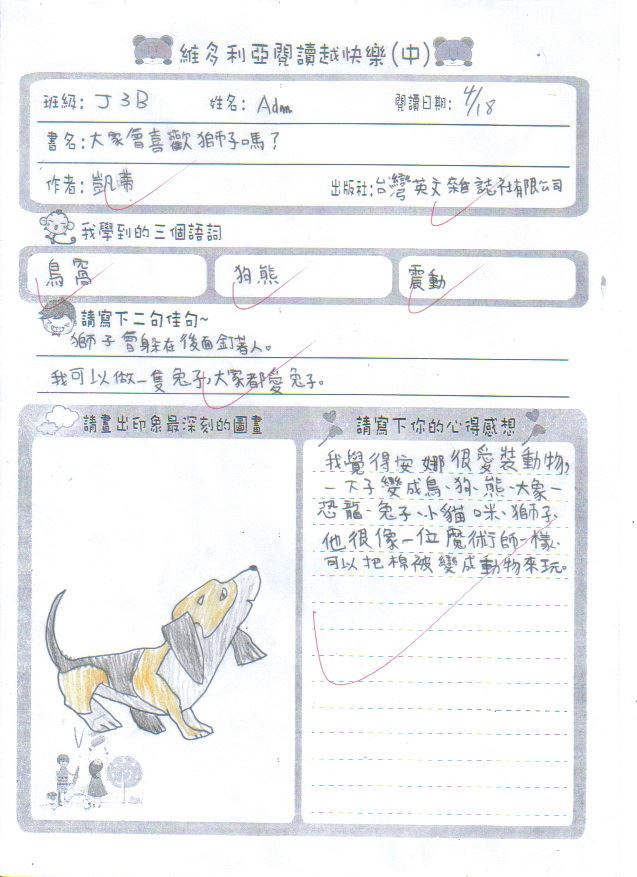 維多利亞閱讀越快樂(中)
班級: J3B 姓名: Adam 閱讀日期: 4/18
書名:大家會喜歡獅子嗎?
作者:凱蒂 出版社:台灣英文雜誌社有限公司
我學到的三個語詞
鳥窩 狗熊 震動
請寫下二句佳句~
獅子會躲在後面釘著人。
我可以做一隻兔子,大家都愛兔子。
請畫出印象最深刻的圖畫
請寫下你的心得感想
我覺得安娜很愛裝動物,
一下子變成鳥、狗、熊、大象、
恐龍、兔子、小貓咪、獅子,
他很像一位魔術師一樣,
可以把棉被變成動物來玩。